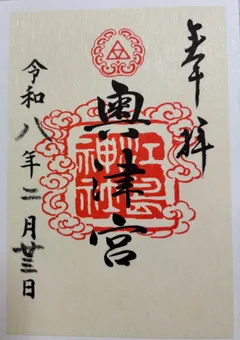 奉拝
奥津宮
江島神社
令和八年二月廿三日